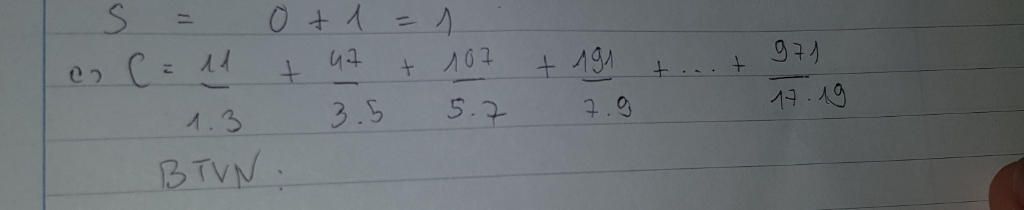 S = 0 + 1 = 1
c) C = 11/1.3 + 47/3.5 + 107/5.7 + 191/7.9 + ... + 971/17.19
BTVN: